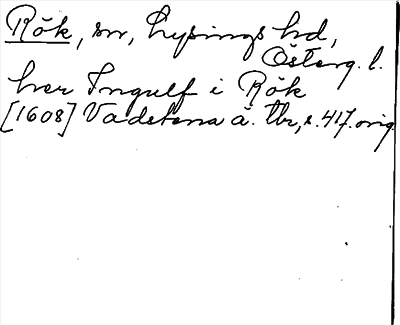 Rök, sn, Lysings hd,
Österg. l.
herr Ingulf i Rök
[1608] Vadstena ä. tbr, s. 417. orig.